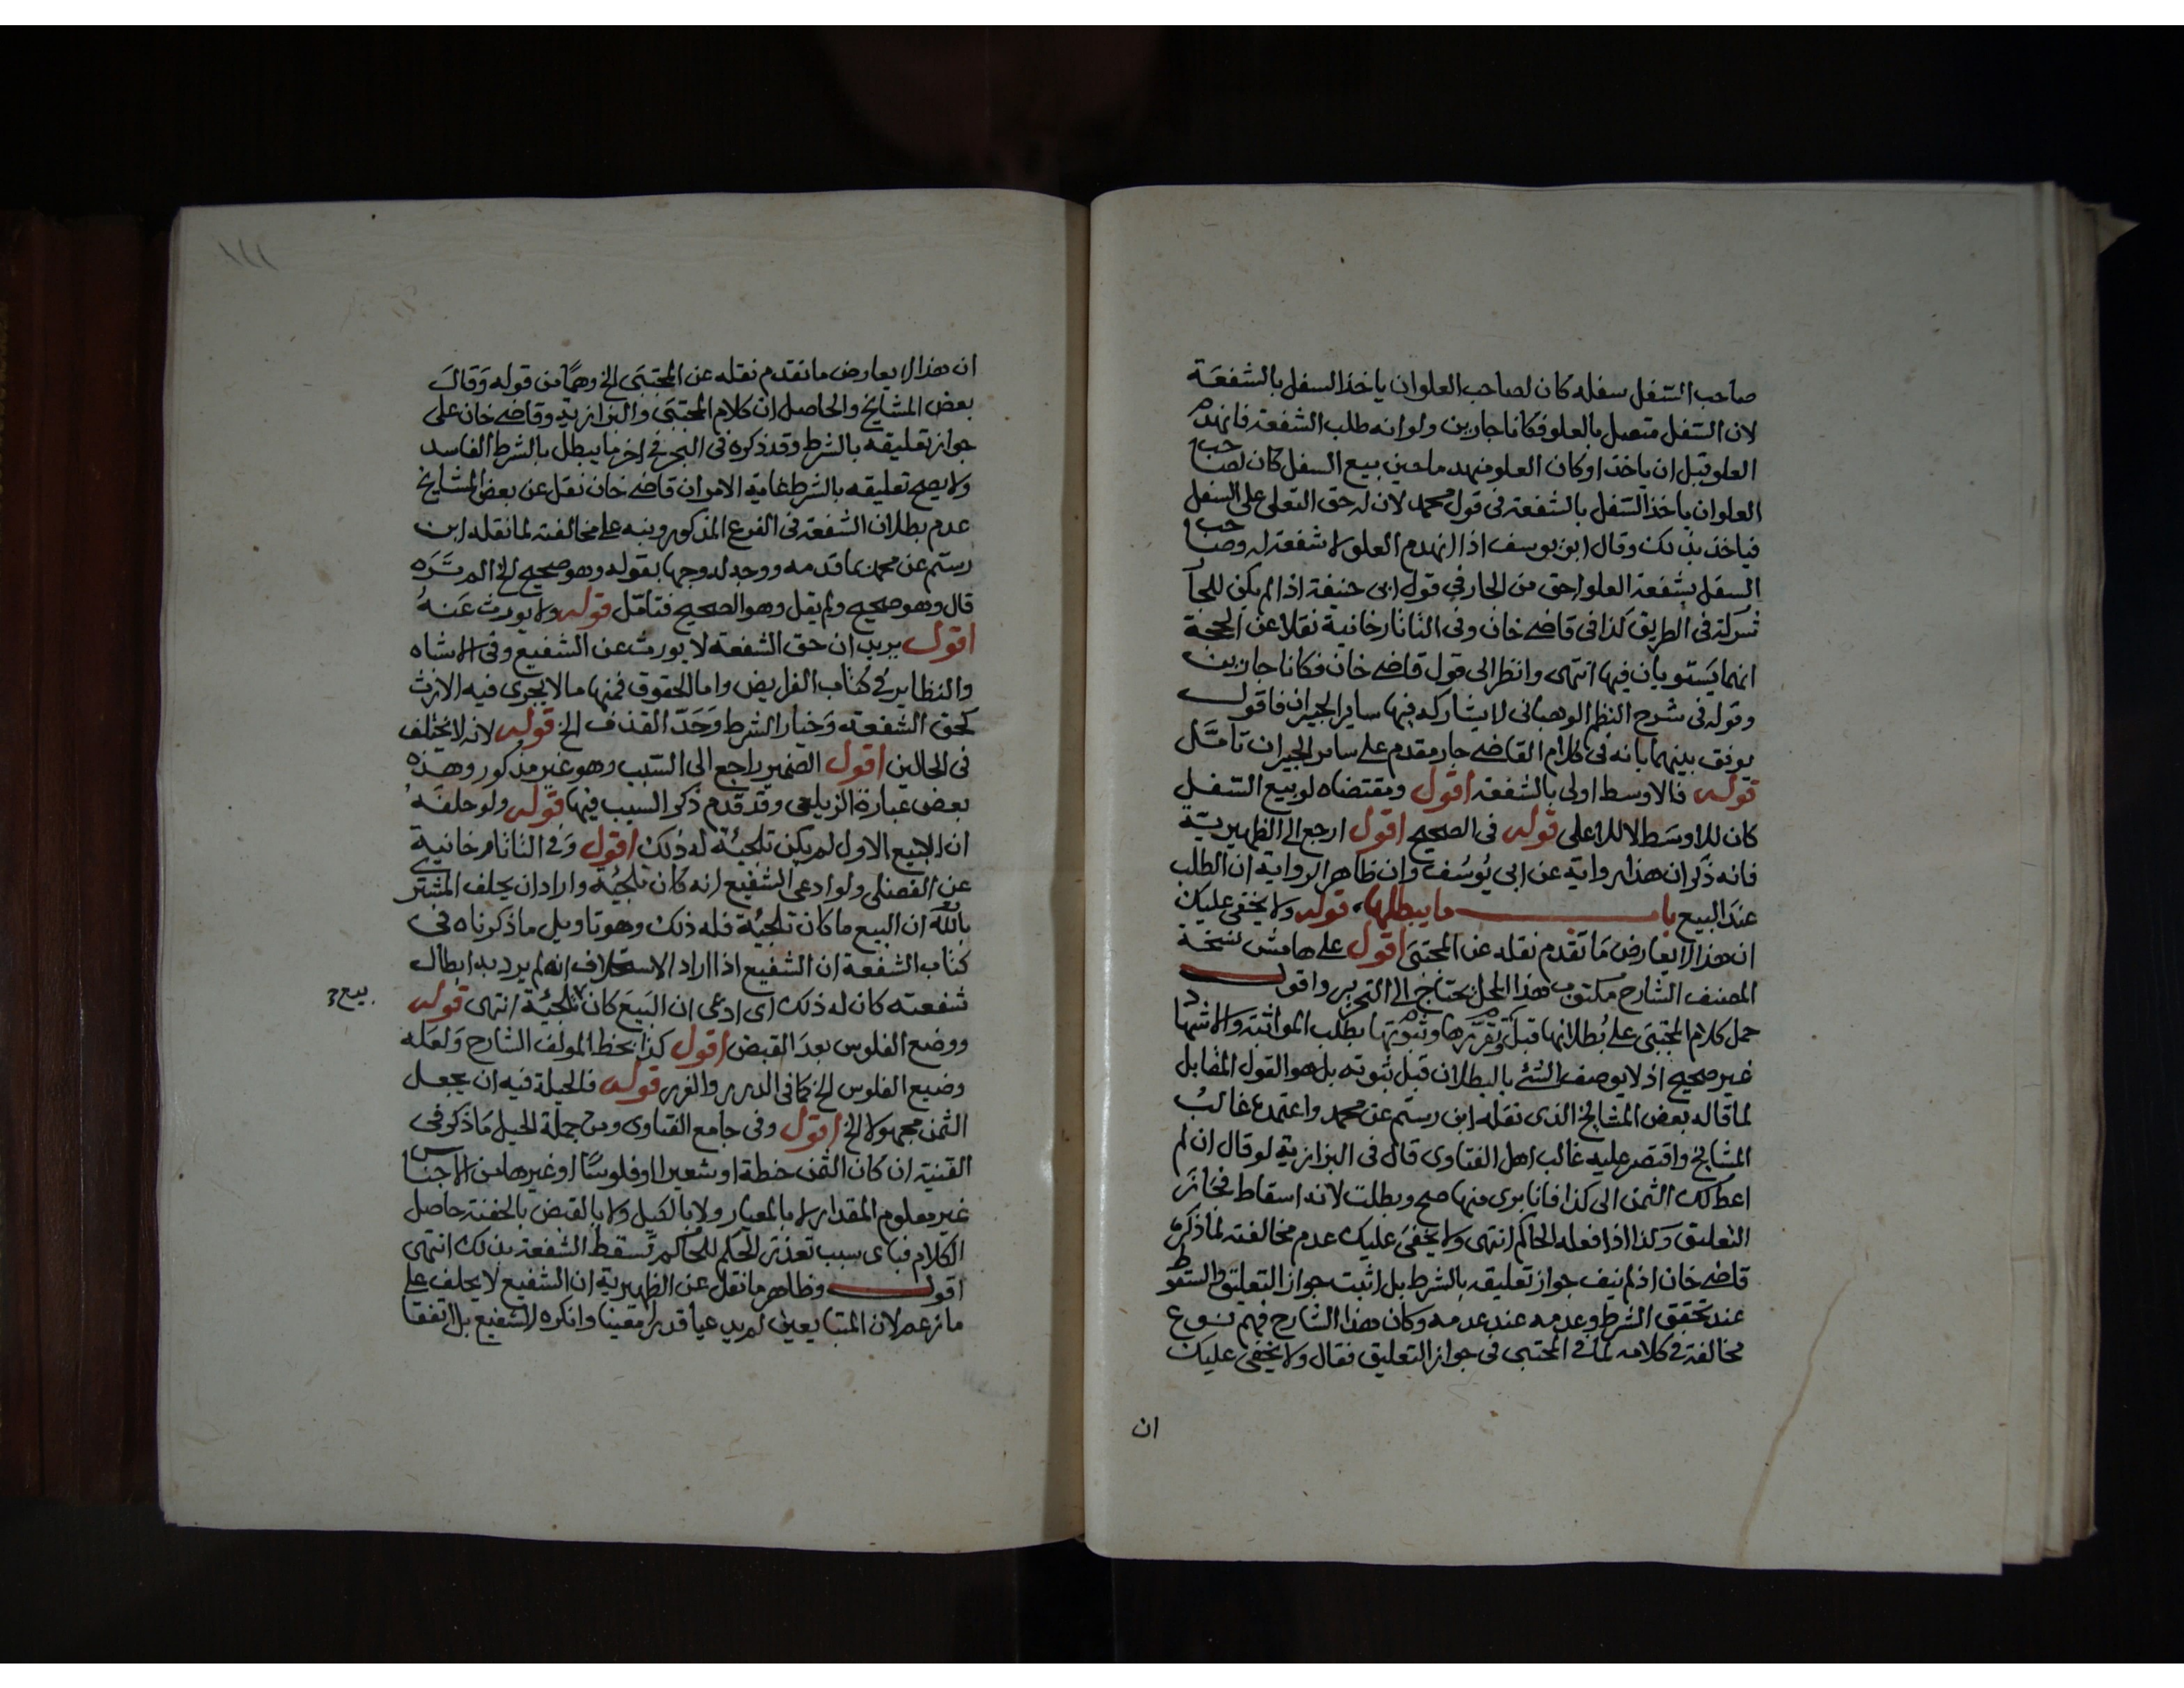 صاحب السفل سفله كان لصاحب العلو ان ياخذ السفل بالشفعة
لان السفل متصل بالعلو فكانا جارين ولو انه طلب الشفعة فانهدم
العلو قبل ان ياخذ او كان العلو منهدما حين بيع السفل كان لصاحب
العلو ان ياخذ السفل بالشفعة فى قول محمد لان له حق التعلى على السفل
فياخذ بذلك وقال ابو يوسف اذا انهدم العلو لا شفعة له وصاحب
السفل بشفعة العلو احق من الجار فى قول ابى حنيفة اذا لم يكن للجار
شركة فى الطريق كذا فى قاضى خان وفى التاتارخانية نقلا عن الحجة
انهما يستويان فيها انتهى وانظر الى قول قاضى خان فكانا جارين
وقوله فى شرح النظم الوهبانى لا يشاركه فيها ساير الجيران فاقول
يوفق بينهما بانه فى كلام القاضى جار مقدم على ساير الجيران تامل
قوله فالاوسط اولى بالشفعة اقول ومقتضاه لو بيع السفل
كان للاوسط لا للاعلى قوله فى الصحيح اقول ارجع الى الظهيرية
فانه ذكر ان هذا رواية عن ابى يوسف وان ظاهر الرواية ان الطلب
عند البيع باب ما يبطلها قوله ولا يخفى عليك
ان هذا لا يعارض ما تقدم نقله عن المجتبى اقول على هامش نسخة
المصنف الشارح مكتوب هذا المحل يحتاج الى التحرير واقول
حمل كلام المجتبى على بطلانها قبل تقررها وثبوتها بطلب المواثبة والاشهاد
غير صحيح اذ لا يوصف الشئ بالبطلان قبل ثبوته بل هو القول المقابل
لما قاله بعض المشايخ الذى نقله ابن رستم عن محمد واعتمده غالب
المشايخ واقتصر عليه غالب اهل الفتاوى قال فى البزازية لو قال ان لم
اعطك الثمن الى كذا فانا برى منها صح وبطلت لانه اسقاط فجاز
التعليق وكذا اذا فعله الحاكم انتهى ولا يخفى عليك عدم مخالفته لما ذكره
قاضى خان اذ لم ينف جواز تعليقه بالشرط بل اثبت جواز التعليق والسقوط
عند تحقق الشرط وعدمه عند عدمه وكان هذا الشارح فهم نوع
مخالفة فى كلامه لما فى المجتبى فى جواز التعليق فقال ولا يخفى عليك
ان
١١١
ان هذا لا يعارض ما تقدم نقله عن المجتبى الخ وهما من قوله وقال
بعض المشايخ والحاصل ان كلام المجتبى والبزازية وقاضى خان على
جواز تعليقه بالشرط وقد ذكره فى البحر فى اخر ما يبطل بالشرط الفاسد
ولا يصح تعليقه بالشرط غاية الامر ان قاضى خان نقل عن بعض المشايخ
عدم بطلان الشفعة فى الفرع المذكور ونبه على مخالفته لما نقله ابن
رستم عن محمد بما قدمه ووجد له وجها بقوله وهو صحيح الخ الم تره
قال وهو صحيح ولم يقل وهو الصحيح فتامل قوله ولا يورث عنه
اقول يريد ان حق الشفعة لا يورث عن الشفيع وفى الاشاه
والنظاير فى كتاب الفرايض واما الحقوق فمنها ما لا يجرى فيه الارث
كحق الشفعة وخيار الشرط وحد القذف الخ قوله لانه لا يختلف
فى الحالين اقول الضمير راجع الى السبب وهو غير مذكور وهذه
بعض عبارة الزيلعى وقد قدم ذكر السبب فيها قوله ولو حلفه
ان البيع الاول لم يكن تلجئة له ذلك اقول وفى التاتارخانية
عن الفضلى ولو ادعى الشفيع انه كان تلجئه واراد ان يحلف المشترى
بالله ان البيع ما كان تلجئة فله ذلك وهو تاويل ما ذكرناه فى
كتاب الشفعة ان الشفيع اذا اراد الاستحلاف انه لم يرد به ابطال
شفعته كان له ذلك اى ادعى ان البيع كان تلجئة انتهى قوله
بيع
ووضع الفلوس بعد القبض اقول كذا بخط المولف الشارح ولعله
وضيع الفلوس الخ كما فى الدرر والغرر قوله فالحيلة فيه ان يجعل
الثمن مجهولا الخ اقول وفى جامع الفتاوى ومن جملة الحيل ما ذكر فى
القنية ان كان الثمن حنطة او شعيرا او فلوسًا او غيرها من الاجناس
غير معلوم المقدار لا بالمعيار ولا بالكيل ولا بالقبض بالحفنة حاصل
الكلام فباى سبب تعذر الحكم للحاكم تسقط الشفعة بذلك انتهى
اقول وظاهر ما نقل عن الظهيرية ان الشفيع لا يحلف على
ما زعم لان المتبايعين لم يدعيا قدرا معينا وانكره الشفيع بل اتفقا